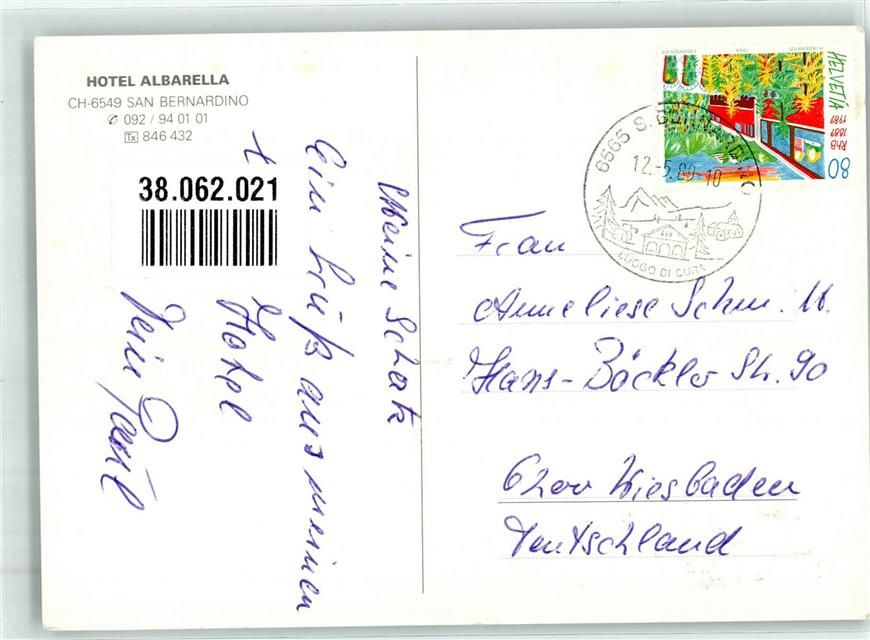 HOTEL ALBARELLA
CH-6549 SAN BERNARDINO
✆ 092 / 94 01 01
Tx 846 432
38.062.021
Meine Schatz
Ein Gruß aus meinen
Hotel
Dein Paul
HELVETIA
RhB
1889
1989
80
6565 S. BERNARDINO
12.-5.89-10
LUOGO DI CURA
Frau
Anneliese Schm. U.
Hans-Böckler Str. 90
6200 Wiesbaden
Deutschland